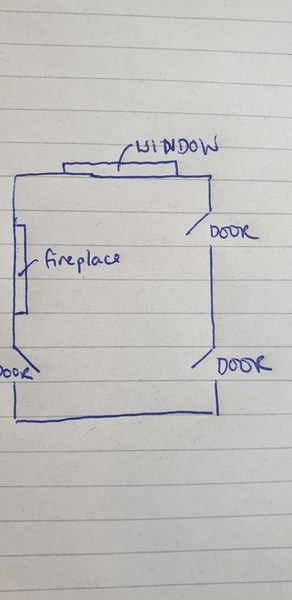 WINDOW
DOOR
fireplace
DOOR
DOOR